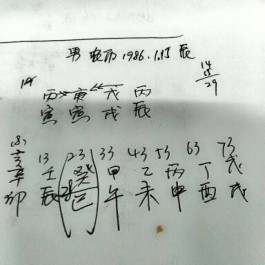 男 1986.1.15 辰
14
15
29
丙 庚 戊 丙
寅 寅 戌 辰
13 23 33 43 53 63 73
辛 壬 癸 甲 乙 丙 丁 戊
卯 辰 巳 午 未 申 酉 戌